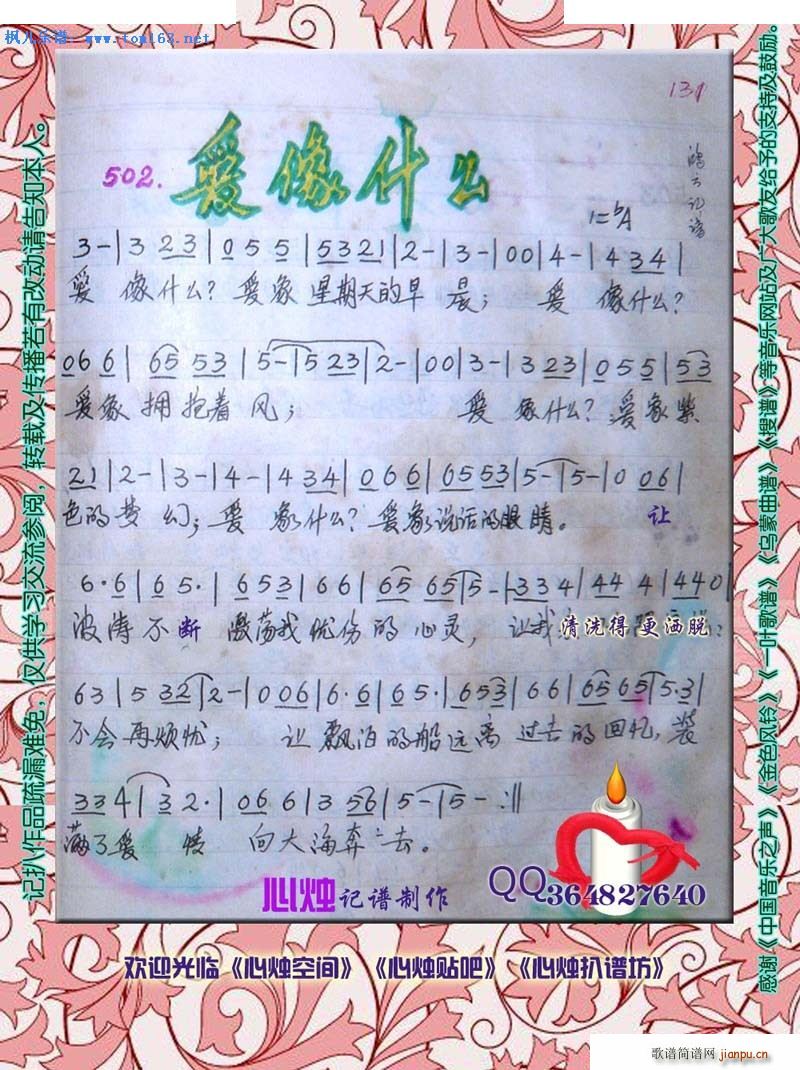 枫儿乐谱：www.tom163.net
131
502.
爱像什么
1=♭A
3-|3 23|0 5 5|5321|2-|3-|00|4-|4 34|
爱 像什么？爱象星期天的早 晨； 爱 像什么？
06 6|65 53|5-|5 23|2-|00|3-|3 23|0 5 5|53
爱象 拥抱着 风； 爱 象什么？爱象紫
21|2-|3-|4-|4 34|0 6 6|6553|5-|5-|0 06|
色的梦 幻；爱 象什么？爱象说话的眼 睛。 让
6·6|6 5·|6 53|6 6|65 65|5-|33 4|44 4|440|
波涛不断 激荡我忧伤的 心灵，让我 清洗得 更洒脱：
63|5 32|2-|0 06|6·6|65·|653|66|65 65|5·3|
不会再烦忧； 让 飘泊的船远离 过去的回忆，装
33 4|3 2·|06 6|3 56|5-|5-:||
满了爱 情 向大海奔 去。
心烛记谱制作
QQ364827640
欢迎光临《心烛空间》《心烛贴吧》《心烛扒谱坊》
记扒作品疏漏难免，仅供学习交流参阅，转载及传播若有改动请告知本人。
感谢《中国音乐之声》《金色风铃》《一叶歌谱》《乌蒙曲谱》《搜谱》等音乐网站及广大歌友给予的支持及鼓励。
歌谱简谱网
jianpu.cn